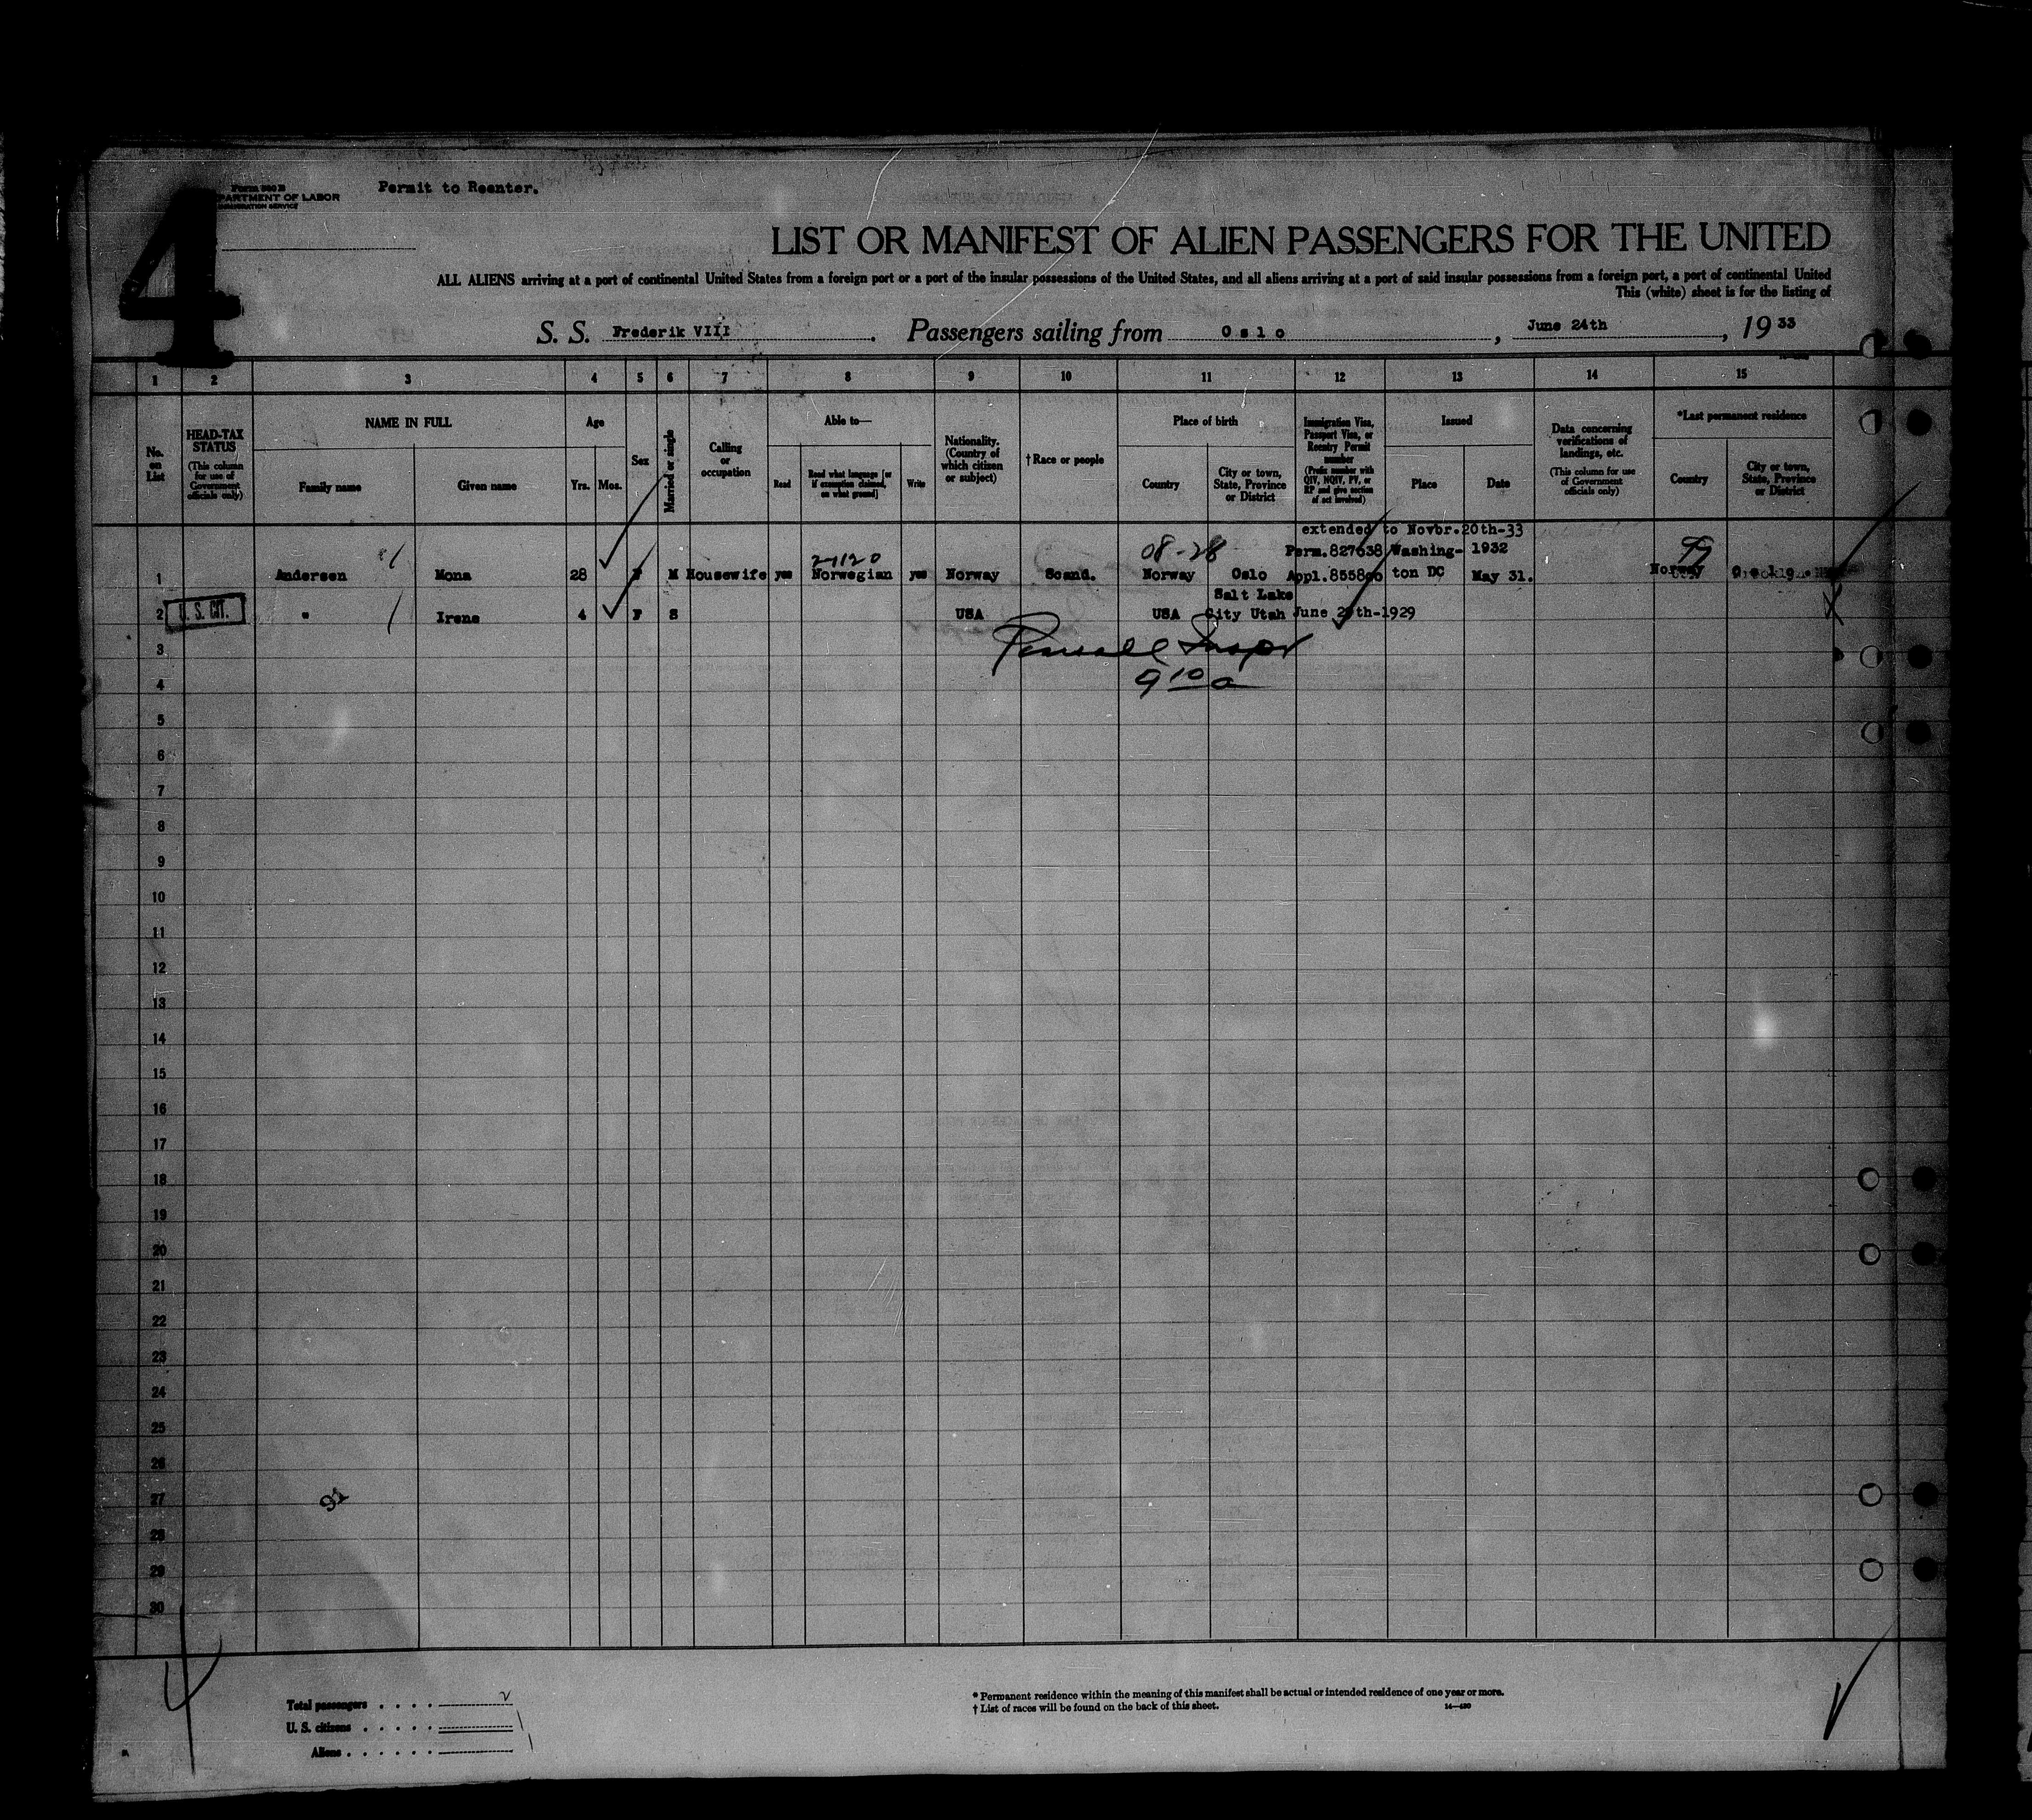 4
Form 500 B
DEPARTMENT OF LABOR
IMMIGRATION SERVICE
Permit to Reenter.
LIST OR MANIFEST OF ALIEN PASSENGERS FOR THE UNITED
ALL ALIENS arriving at a port of continental United States from a foreign port or a port of the insular possessions of the United States, and all aliens arriving at a port of said insular possessions from a foreign port, a port of continental United
This (white) sheet is for the listing of
S. S. Frederik VIII. Passengers sailing from Oslo, June 24th, 1933
1 2 3 4 5 6 7 8 9 10 11 12 13 14 15
No. on List
HEAD-TAX STATUS (This column for use of Government officials only)
NAME IN FULL
Family name
Given name
Age
Yrs. Mos.
Sex
Married or single
Calling or occupation
Able to—
Read
Read what language [or if exemption claimed, on what ground]
Write
Nationality. (Country of which citizen or subject)
†Race or people
Place of birth
Country
City or town, State, Province or District
Immigration Visa, Passport Visa, or Reentry Permit number (Prefix number with QIV, NQIV, PV, or RP and give section of act involved)
Issued
Place
Date
Data concerning verifications of landings, etc. (This column for use of Government officials only)
*Last permanent residence
Country
City or town, State, Province or District
extended to Novbr.20th-33
27120 08-28 Perm.827638 Washing- 1932
1 Andersen Mona 28 F M Housewife yes Norwegian yes Norway Scand. Norway Oslo Appl. ton DC May 31. Norway Oslo
Salt Lake
2 U. S. CIT. " Irene 4 F S USA USA City Utah June 29th-1929
3
9 10 a
4
5
6
7
8
9
10
11
12
13
14
15
16
17
18
19
20
21
22
23
24
25
26
27 91
28
29
30
4
Total passengers . . . . 2
U. S. citizens . . . . . 1
Aliens . . . . . . 1
* Permanent residence within the meaning of this manifest shall be actual or intended residence of one year or more.
† List of races will be found on the back of this sheet.
14—430